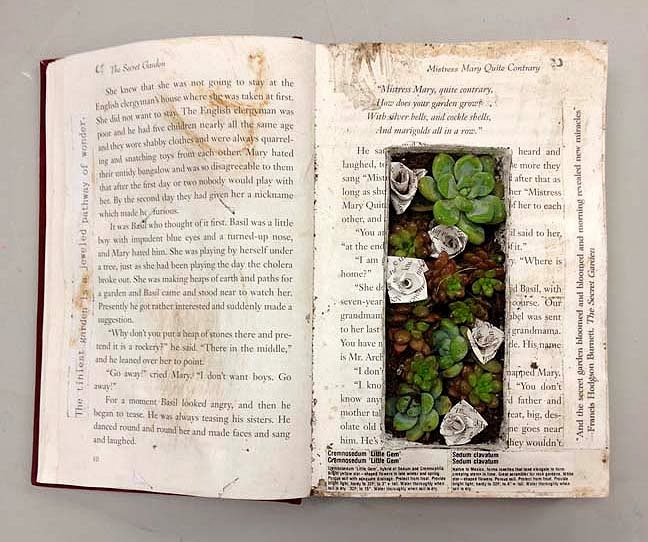 The Secret Garden
She knew that she was not going to stay at the
English clergyman's house where she was taken at first.
She did not want to stay. The English clergyman was
poor and he had five children nearly all the same age
and they wore shabby clothes and were always quarrel-
ing and snatching toys from each other. Mary hated
their untidy bungalow and was so disagreeable to them
that after the first day or two nobody would play with
her. By the second day they had given her a nickname
which made her furious.
It was Basil who thought of it first. Basil was a little
boy with impudent blue eyes and a turned-up nose,
and Mary hated him. She was playing by herself under
a tree, just as she had been playing the day the cholera
broke out. She was making heaps of earth and paths for
a garden and Basil came and stood near to watch her.
Presently he got rather interested and suddenly made a
suggestion.
"Why don't you put a heap of stones there and pre-
tend it is a rockery?" he said. "There in the middle,"
and he leaned over her to point.
"Go away!" cried Mary. "I don't want boys. Go
away!"
For a moment Basil looked angry, and then he
began to tease. He was always teasing his sisters. He
danced round and round her and made faces and sang
and laughed.
10
The tiniest garden is a jeweled pathway of wonder.
Mistress Mary Quite Contrary
"Mistress Mary, quite contrary,
How does your garden grow?
With silver bells, and cockle shells,
And marigolds all in a row."
He heard and
laughed, to more they
sang "Mist after that as
long as she "Mistress
Mary Quit of her to each
other, and
"You a said to her,
"at the end of it."
"I am "Where is
home?"
"She d Basil, with
seven-year course. Our
grandmam bel was sent
to her last grandmama.
You have n His name
is Mr. Arc
"I don't snapped Mary.
"I kno "You don't
know any father and
mother tal reat, big, des-
olate old one goes near
him. He's they wouldn't
"And the secret garden bloomed and bloomed and morning revealed new miracles"
-Francis Hodgson Burnett. The Secret Garden
Cremnosedum 'Little Gem'
Cremnosedum 'Little Gem'
Sedum clavatum
Sedum clavatum